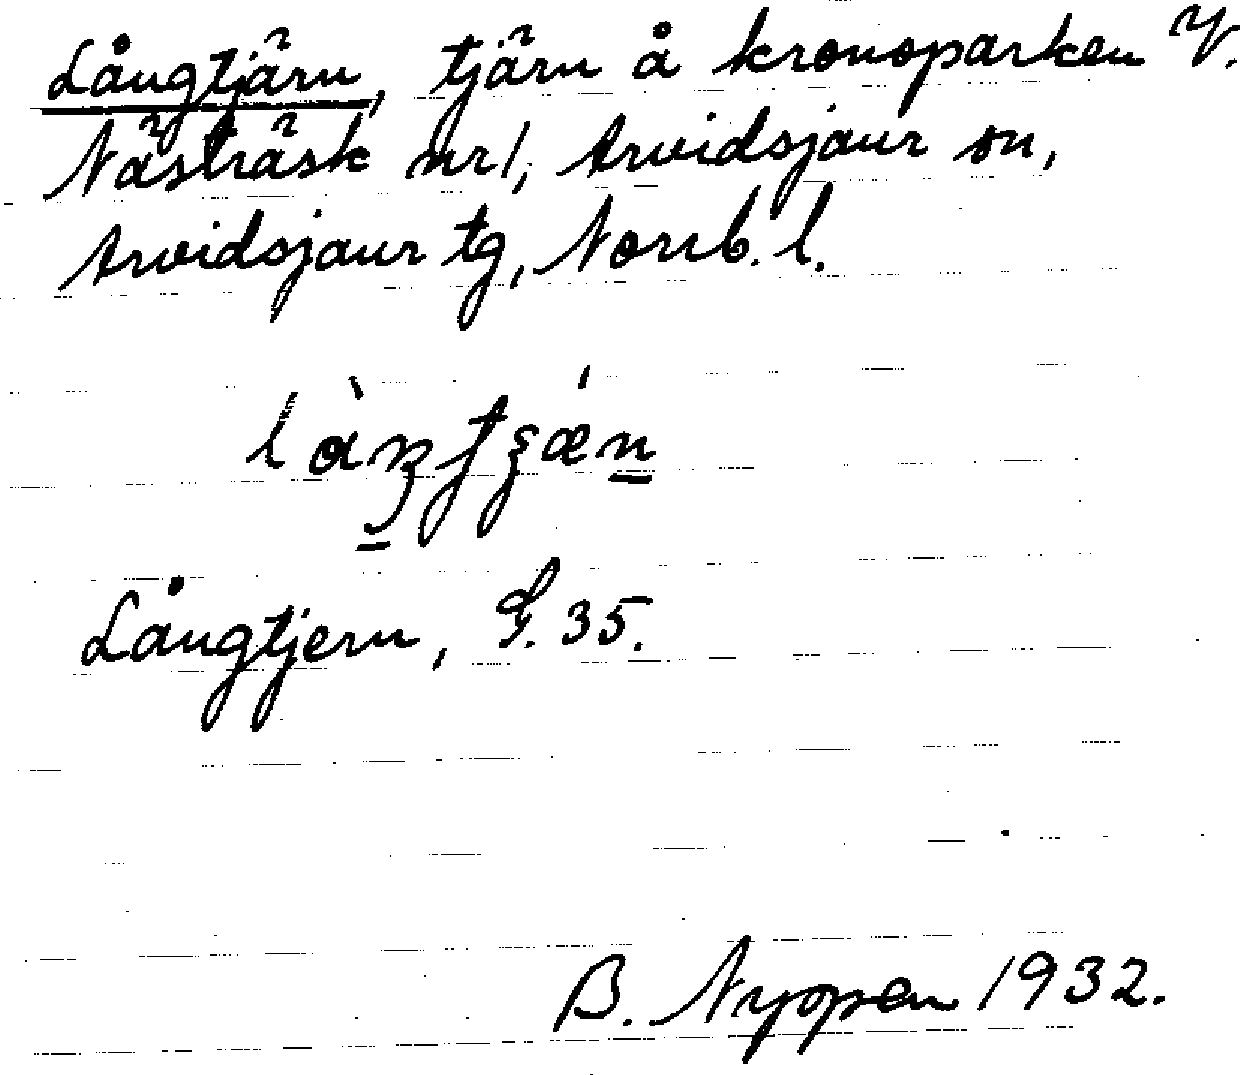 Långtjärn, tjärn å kronoparken V.
Nästräsk nr 1, Arvidsjaur sn,
Arvidsjaur tg, Norrb. l.
Långtjern, S. 35.
B. Nyppen 1932.